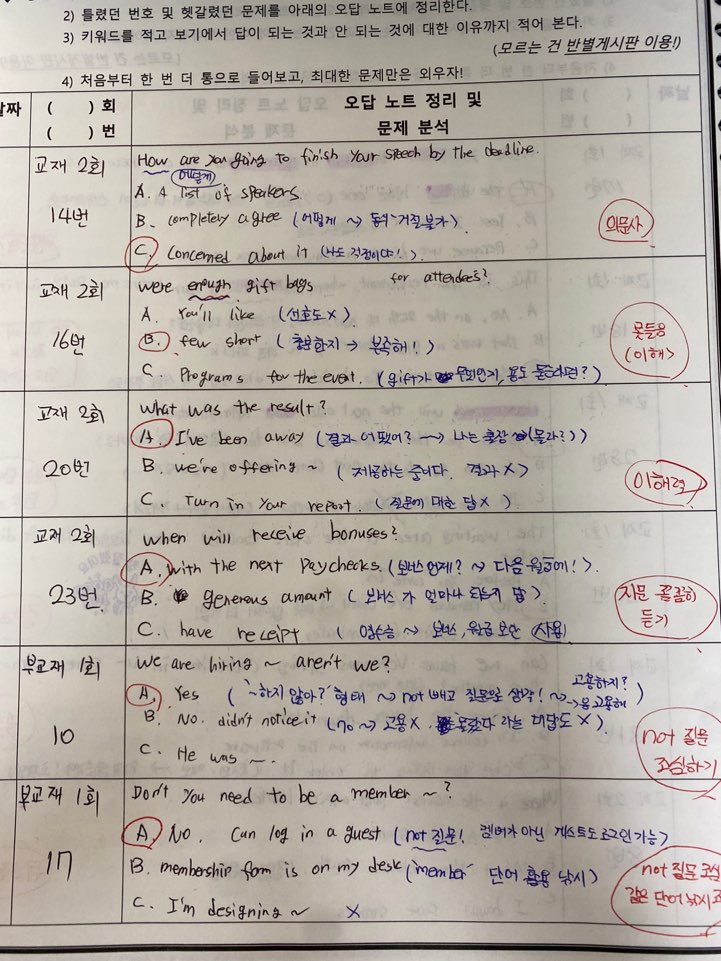 2) 틀렸던 번호 및 헷갈렸던 문제를 아래의 오답 노트에 정리한다.
3) 키워드를 적고 보기에서 답이 되는 것과 안 되는 것에 대한 이유까지 적어 본다.
(모르는 건 반별게시판 이용!)
4) 처음부터 한 번 더 통으로 들어보고, 최대한 문제만은 외우자!
날짜 ( ) 회 오답 노트 정리 및
( ) 번 문제 분석
교재 2회 How are you going to finish your speech by the deadline.
(어떻게)
14번 A. A list of speakers.
B. completely agree (어떻게 ~> 동의·거절불가)
의문사
C. concerned about it (나도 걱정이야!)
교재 2회 were enough gift bags for attendees?
16번 A. You'll like (선호도 X)
B. few short (충분한지 → 부족해!)
못들음
(이해)
C. Programs for the event.
교재 2회 what was the result?
20번 A. I've been away (결과 어땠어? ~> 나는 출장 (몰라?))
B. we're offering ~ (제공하는 중니다. 결과 X)
이해력
C. Turn in your report. (질문에 대한 답 X)
교재 2회 when will receive bonuses?
23번 A. with the next paychecks. (보너스 언제? ~> 다음 월급에!)
B. generous amount (보너스가 얼마나 되는지 답)
지문 꼼꼼히
듣기
C. have receipt (영수증 ~> 보너스, 월급 오안 사용)
부교재 1회 we are hiring ~ aren't we?
10 A. Yes ("~하지 않아?" 형태 ~> not 빼고 질문으로 생각! ~> 고용하지?
~> 응 고용해
B. No. didn't notice it (no ~> 고용 X. 라는 대답도 X)
C. He was ~.
not 질문
조심하기
부교재 1회 Don't you need to be a member ~?
17 A. No. Can log in a guest (not 질문! 멤버가 아닌 게스트도 로그인 가능)
B. membership form is on my desk ("member" 단어 활용 낚시)
not 질문 조심
같은 단어 낚시
C. I'm designing ~ X